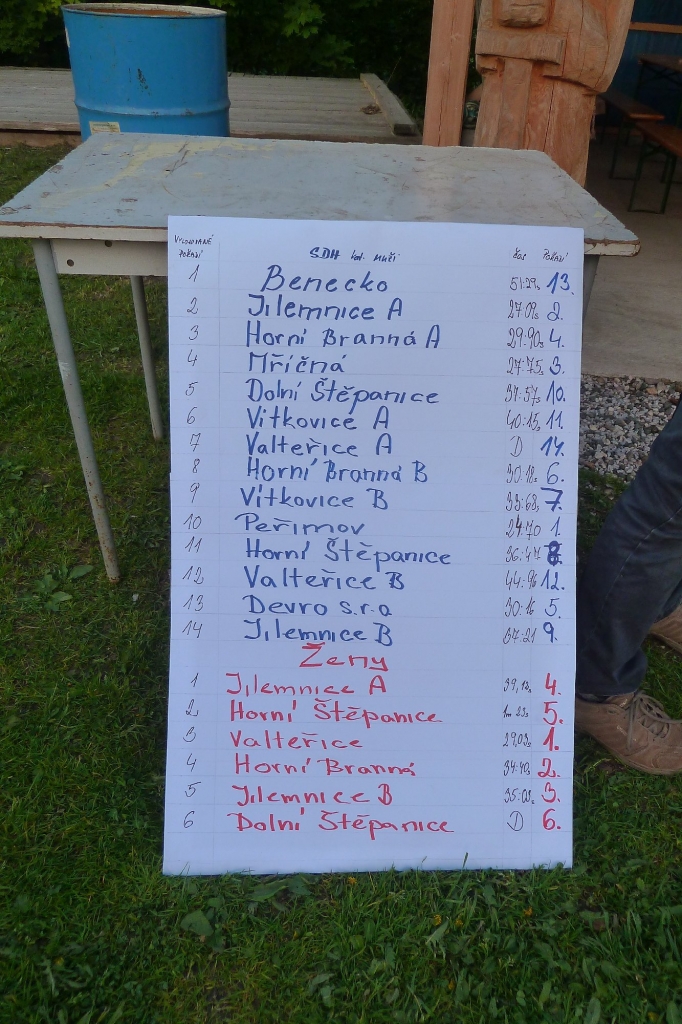 VYLOSOVANÉ POŘADÍ SDH kat. muži čas POŘADÍ
1 Benecko 51:29s 13.
2 Jilemnice A 27:09s 2.
3 Horní Branná A 29:90s 4.
4 Mříčná 27:75s 3.
5 Dolní Štěpanice 37:57s 10.
6 Vítkovice A 40:15s 11.
7 Valteřice A D 14.
8 Horní Branná B 30:18s 6.
9 Vítkovice B 33:68s 7.
10 Peřimov 24:70 1.
11 Horní Štěpanice 36:47 8.
12 Valteřice B 44:96 12.
13 Devro s.r.o 30:16 5.
14 Jilemnice B 37:21 9.
Ženy
1 Jilemnice A 39,13s 4.
2 Horní Štěpanice 1m 23s 5.
3 Valteřice 29,03s 1.
4 Horní Branná 34:40s 2.
5 Jilemnice B 35:03s 3.
6 Dolní Štěpanice D 6.